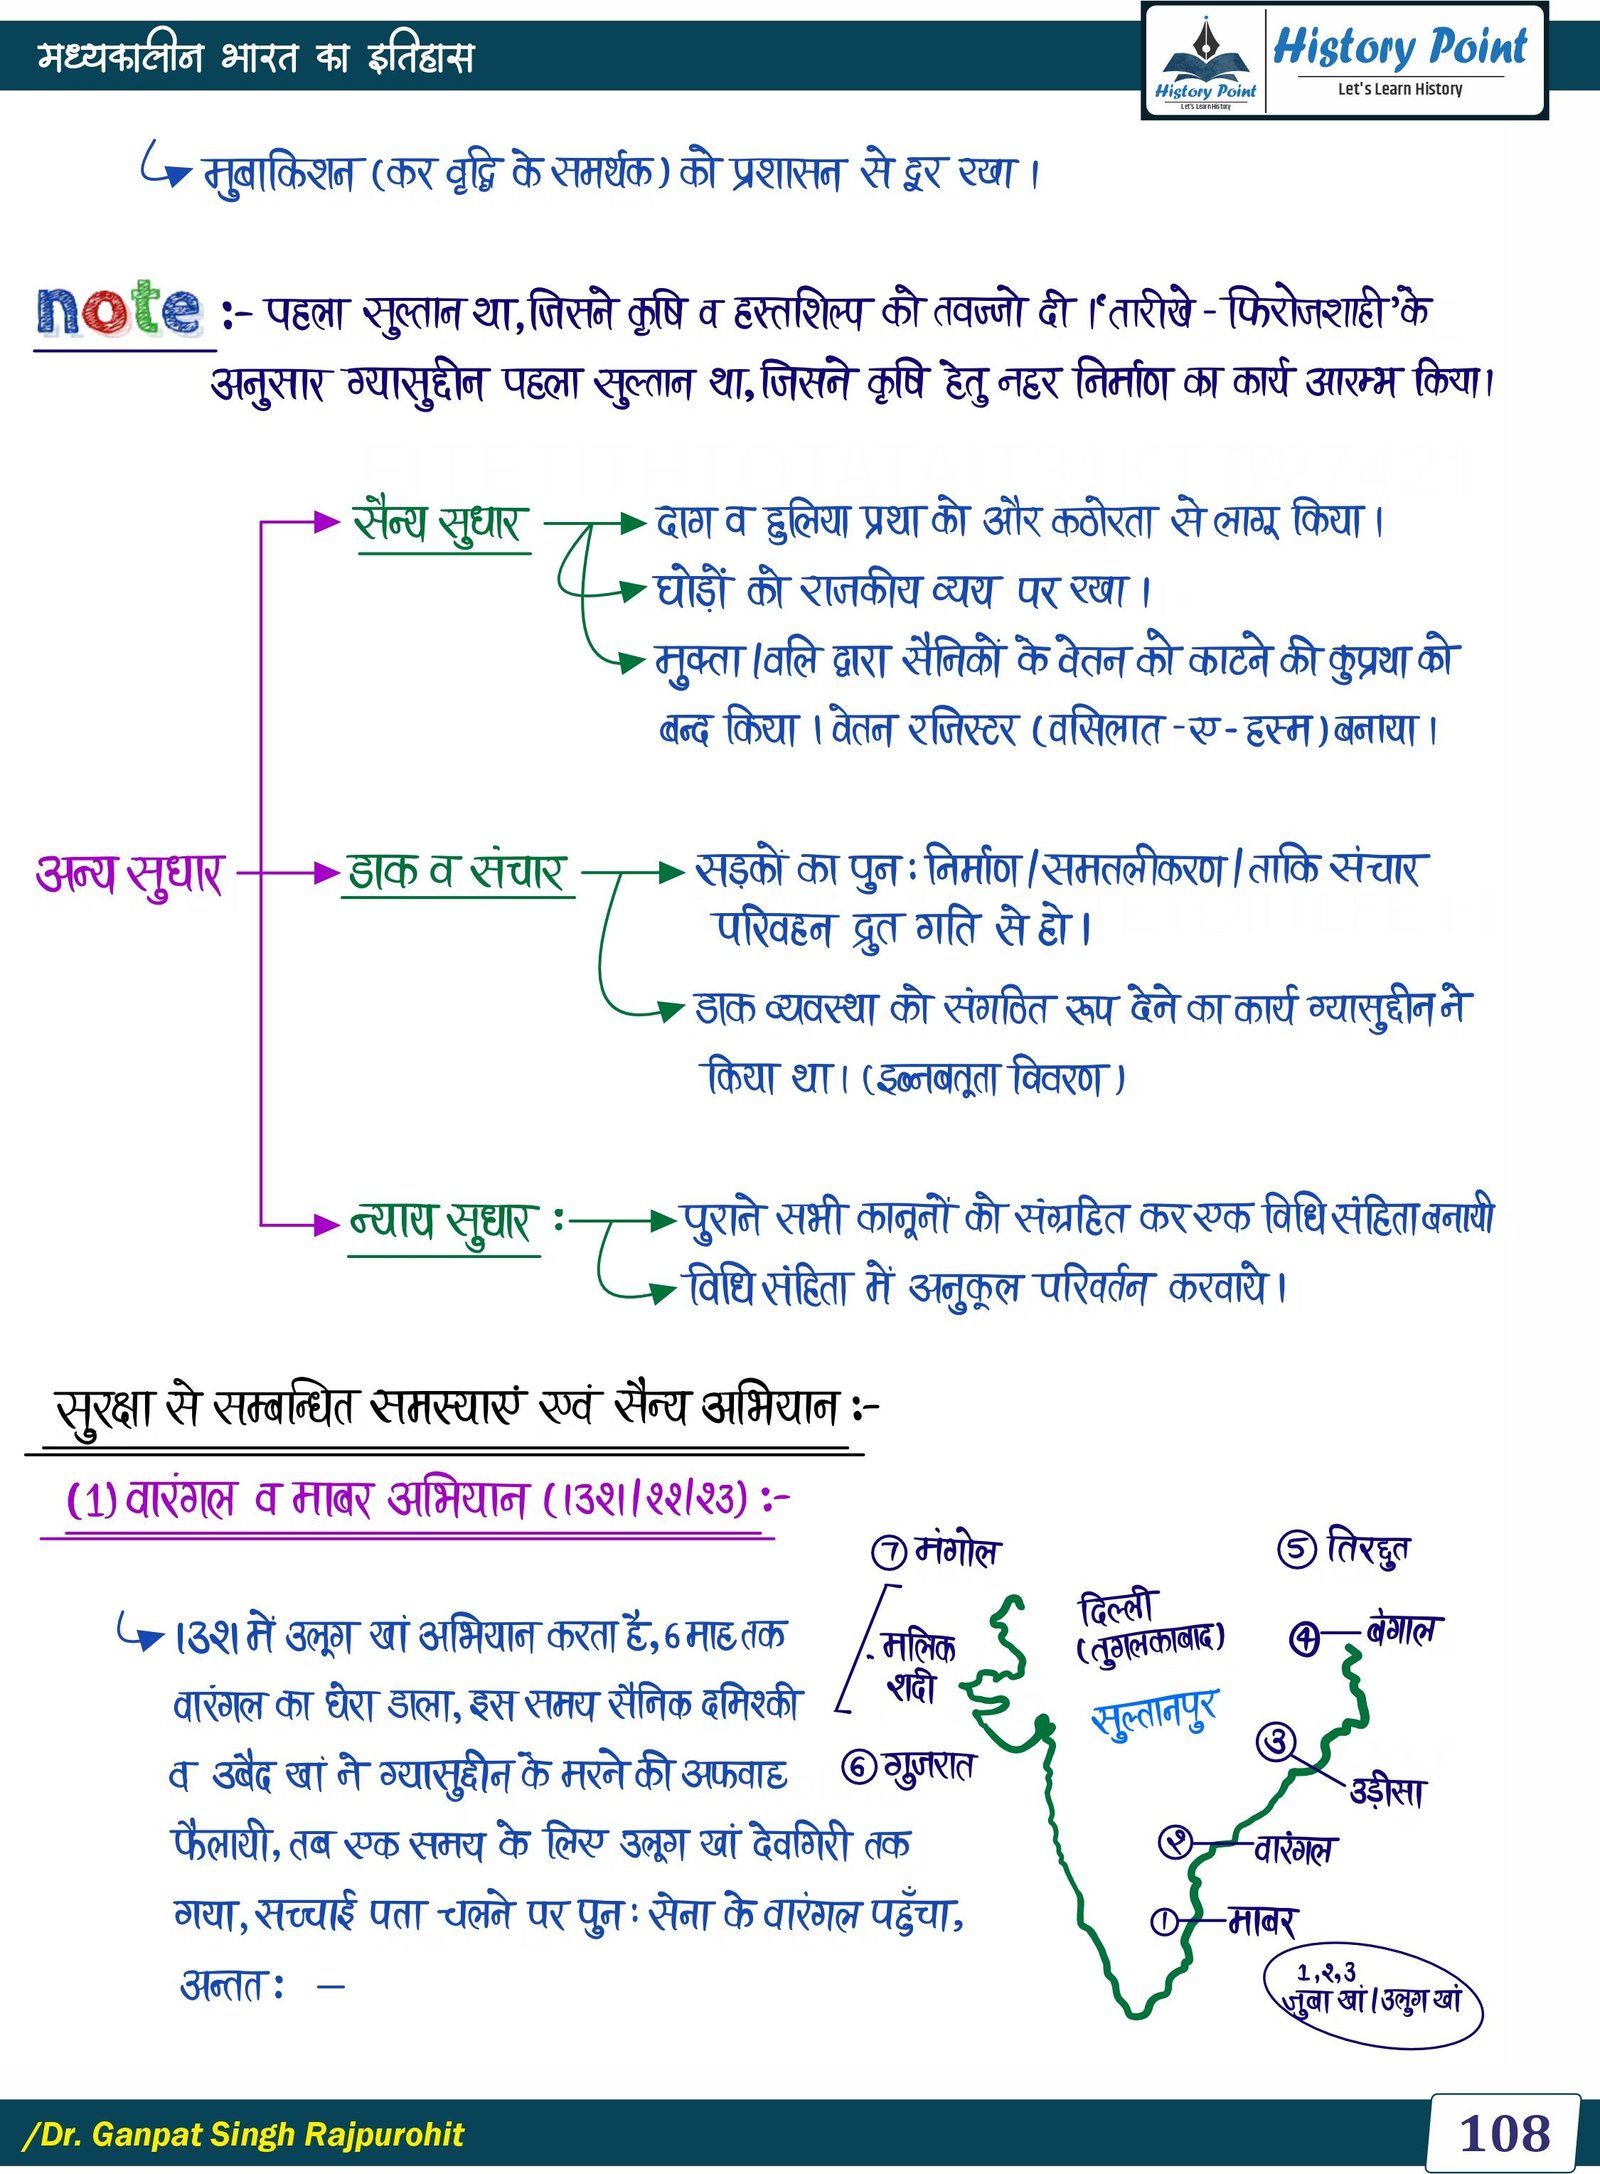 मध्यकालीन भारत का इतिहास
History Point
Let's Learn History
History Point
Let's Learn History
मुबाकिशन (कर वृद्धि के समर्थक) को प्रशासन से दूर रखा ।
note :- पहला सुल्तान था, जिसने कृषि व हस्तशिल्प को तवज्जो दी । 'तारीखे - फिरोजशाही' के
अनुसार ग्यासुद्दीन पहला सुल्तान था, जिसने कृषि हेतु नहर निर्माण का कार्य आरम्भ किया।
अन्य सुधार
सैन्य सुधार
दाग व हुलिया प्रथा को और कठोरता से लागू किया ।
घोड़ों को राजकीय व्यय पर रखा ।
मुक्ता / वलि द्वारा सैनिकों के वेतन को काटने की कुप्रथा को
बन्द किया । वेतन रजिस्टर (वसिलात -ए- हस्म) बनाया ।
डाक व संचार
सड़कों का पुन: निर्माण / समतलीकरण / ताकि संचार
परिवहन द्रुत गति से हो ।
डाक व्यवस्था को संगठित रूप देने का कार्य ग्यासुद्दीन ने
किया था। (इब्नबतूता विवरण)
न्याय सुधार :
पुराने सभी कानूनों को संग्रहित कर एक विधि संहिता बनायी
विधि संहिता में अनुकूल परिवर्तन करवाये ।
सुरक्षा से सम्बन्धित समस्याएं एवं सैन्य अभियान :-
(1) वारंगल व माबर अभियान (१३२१/२२/२३) :-
१३२१ में उलूग खां अभियान करता है, 6 माह तक
वारंगल का घेरा डाला, इस समय सैनिक दमिश्की
व उबैद खां ने ग्यासुद्दीन के मरने की अफवाह
फैलायी, तब एक समय के लिए उलूग खां देवगिरी तक
गया, सच्चाई पता चलने पर पुन: सेना के वारंगल पहुँचा,
अन्तत: –
⑦ मंगोल
मलिक
शदी
⑥ गुजरात
दिल्ली
(तुगलकाबाद)
सुल्तानपुर
⑤ तिरहुत
④ बंगाल
③ उड़ीसा
② वारंगल
① माबर
1,२,3
जुबा खां / उलुग खां
/Dr. Ganpat Singh Rajpurohit
108